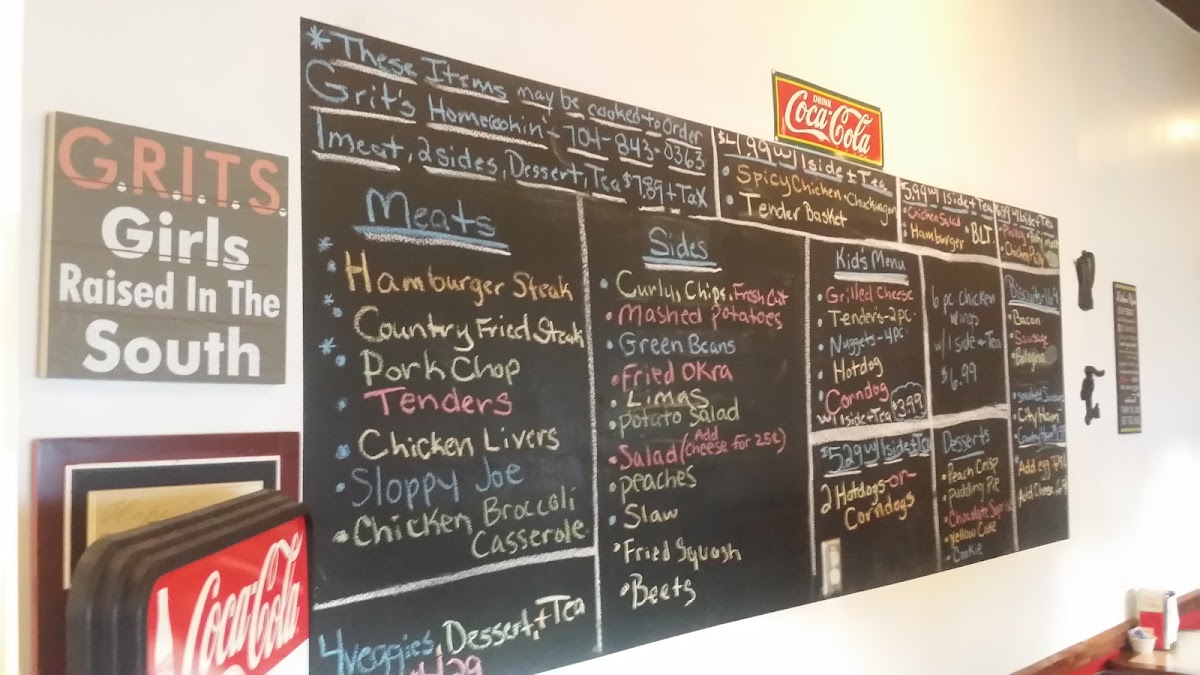 GRITS
Girls
Raised In The
South
*These Items may be cooked to Order
Grit's Homecookin'- 704-843-0363
1 meat, 2 sides, Dessert, Tea $7.89 + Tax
Meats
* Hamburger Steak
* Country Fried Steak
* Pork Chop
• Tenders
• Chicken Livers
• Sloppy Joe
• Chicken Broccoli
Casserole
4 veggies, Dessert, + Tea
Sides
• Curly, Chips, Fresh Cut
• Mashed potatoes
• Green Beans
• Fried OKra
• Limas
• potato Salad
• Salad (Add cheese for 25¢)
• peaches
• Slaw
• Fried Squash
• Beets
DRINK
Coca-Cola
$4.99 w/ 1 side + Tea
• Spicy Chicken • Chuckwagon
• Tender Basket
5.99 w/ 1 side + Tea
• Chicken Salad
• Hamburger • BLT
Kid's Menu
• Grilled Cheese
• Tenders-2pc.
• Nuggets-4pc.
• Hotdog
• Corndog
w/ 1 side + Tea $3.99
$5.29 w/ 1 side + Tea
2 Hotdogs -or-
Corndogs
6 pc chicken
wings
w/ 1 side + Tea
$6.99
Desserts
• Peach Crisp
• pudding Pie
• Chocolate
• Yellow Cake
• Cookie
Biscuits
• Bacon
• Sausage
• Bologna
• City Ham
• Country Ham
• Add egg
Add Cheese
Coca-Cola